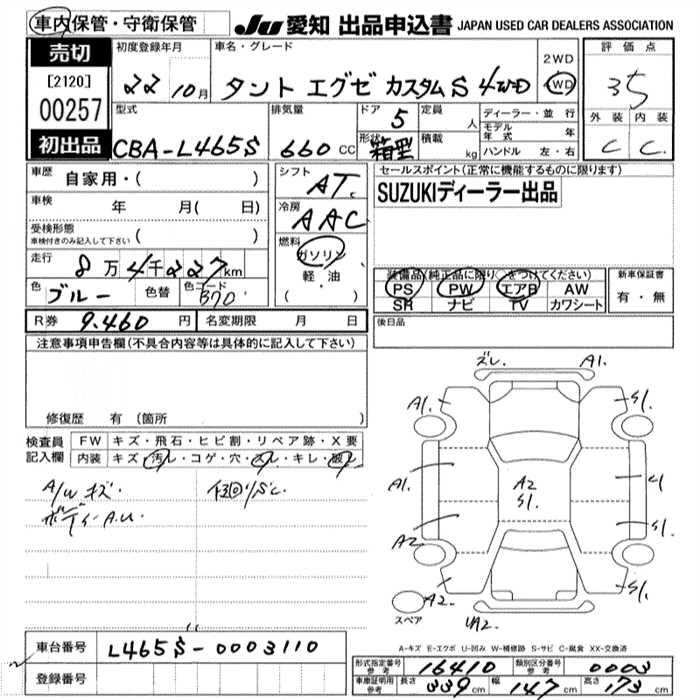 車内保管・守衛保管
JU 愛知 出品申込書 JAPAN USED CAR DEALERS ASSOCIATION
売切
[2120]
00257
初出品
初度登録年月
22 10月
車名・グレード
タント エグゼ カスタムS 4WD
2WD
4WD
評価点
35
外装 内装
C C.
型式
CBA-L465S
排気量
660 CC
ドア 5
形状 箱型
定員 人
積載 kg
ディーラー・並行
モデル年式 年
ハンドル 左・右
車歴 自家用・( )
車検 年 月(日)
受検形態
車検付きのみ記入して下さい ( )
走行 8万4千227km
色 ブルー 色替 色コード B70
シフト AT.
冷房 AAC
燃料
ガソリン
軽・油
( )
セールスポイント(正常に機能するものに限ります)
SUZUKIディーラー出品
装備品(純正品に限り○をつけてください)
PS PW エアB AW
SR ナビ TV カワシート
新車保証書
有・無
R券 9.460 円 名変期限 月 日
後日品
注意事項申告欄(不具合内容等は具体的に記入して下さい)
修復歴 有 (箇所 )
検査員記入欄
FW キズ・飛石・ヒビ割・リペア跡・X要
内装 キズ・汚レ・コゲ・穴・スレ・キレ・破レ
A/W キズ.
ボディーA.U.
ズレ. A1.
A1. S1.
A1. U
A2 S1.
A2 S1.
A2. S1.
スペア UA2.
A-キズ E-エクボ U-凹み W-補修跡 S-サビ C-腐食 XX-交換済
車台番号 L465S-0003110
登録番号
形式指定番号 参考 16410 類別区分番号 参考 0003
車庫証明用 参考 長さ 339cm 幅 147cm 高さ 173cm